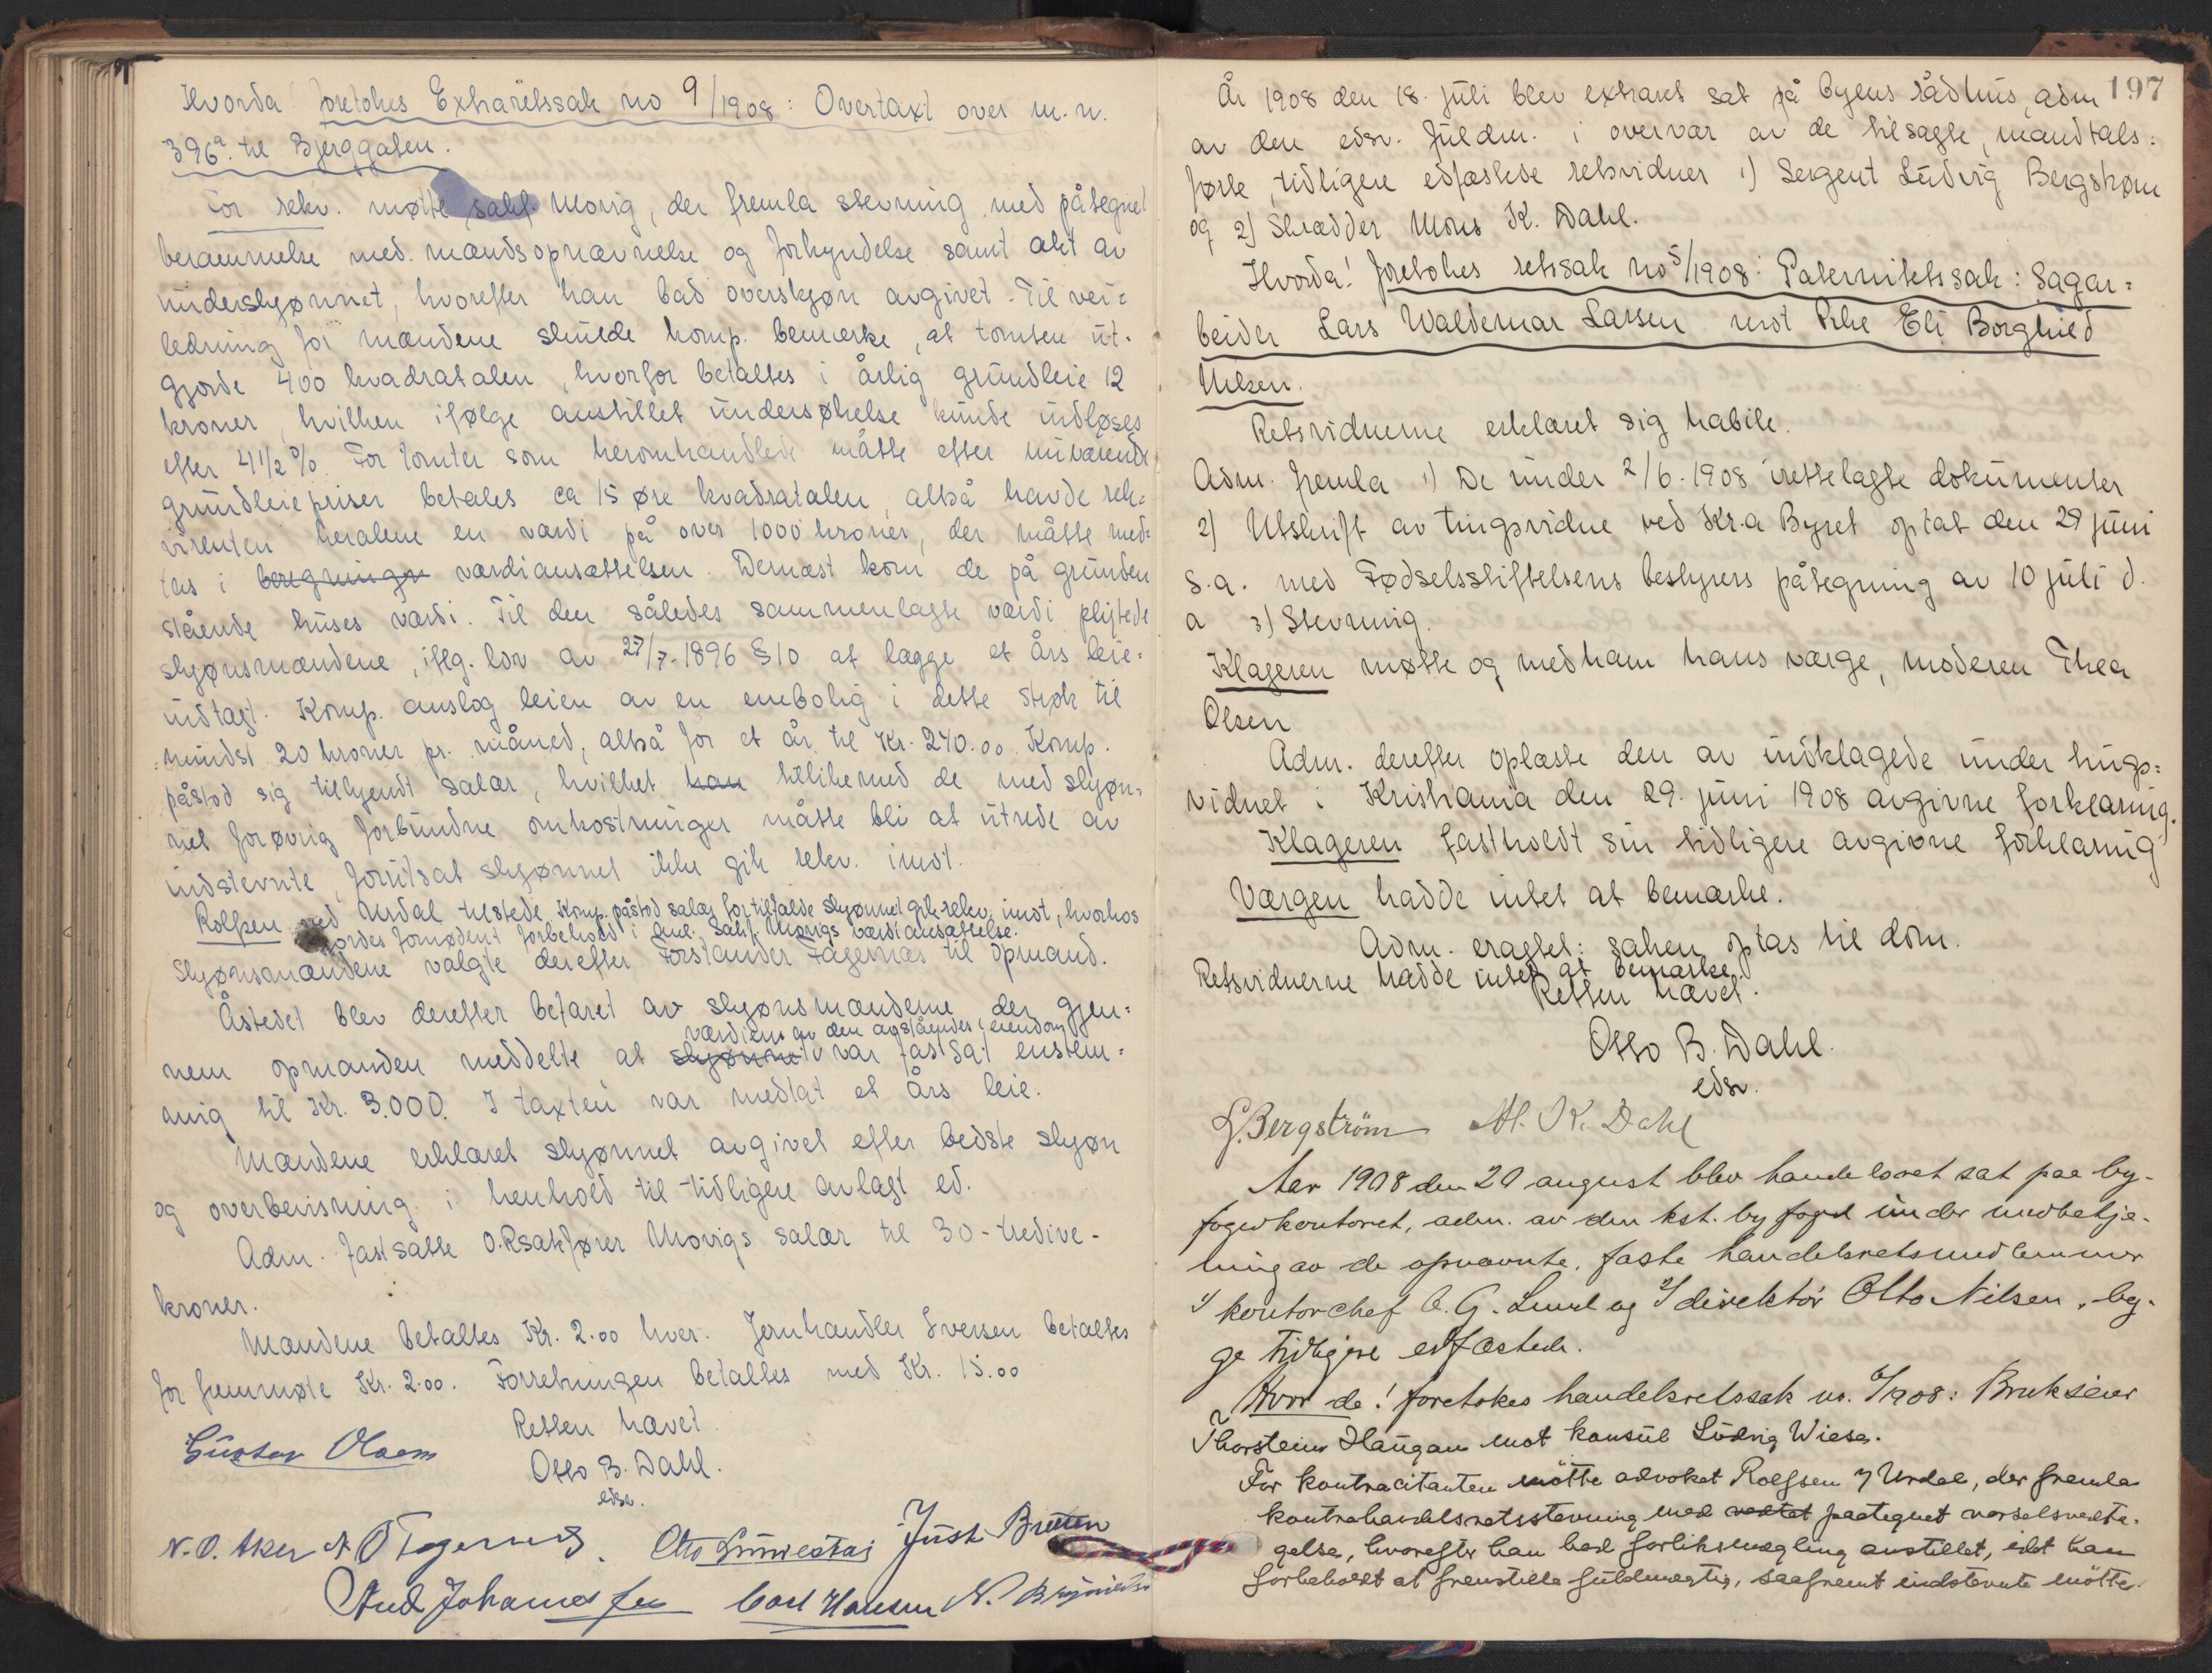 Hvorda! foretokes Extraretssak no 9/1908: Overtaxt over m. n.
396a. til Bjerggaten.
For rekv. møtte sakf. Morig, der fremla stevning med påtegnet
berammelse med mandsopnævnelse og forkyndelse samt akt av
underskjønnet, hvorefter han bad overskjøn avgivet. Til vei=
ledning for mændene skulde komp. bemærke, at tomten ut-
gjorde 400 kvadratalen, hvorfor betaltes i årlig grundleie 12
kroner, hvilken ifølge anstillet undersøkelse kunde indløses
efter 4 1/2 %. For tomter som heromhandlede måtte efter nuværende
grundleiepriser betales ca 15 øre kvadratalen, altså havde rek=
virenten heralene en værdi på over 1000 kroner, der måtte med=
tas i beregningen værdiansættelsen. Dernæst kom de på grunden
stående huses værdi. Til den således sammenlagte værdi pligtede
skjønsmændene, iflg. lov av 27/7-1896 § 10 at lægge et års leie=
indtægt. Komp. anslog leien av en enebolig i dette strøk til
mindst 20 kroner pr. måned, altså for et år til Kr. 240.00. Komp.
påstod sig tilkjendt salær, hvilket han tillikemed de med skjøn=
net forøvrig forbundne omkostninger måtte bli at utrede av
indstevnte, forutsat skjønnet ikke gik rekv. imot.
Rolfsen ved Urdal tilstede. Komp. påstod salær for tilfælde skjønnet gik rekv. imot, hvorhos
fornødent forbehold i anl. Sakf. Morigs værdiansættelse.
Skjønsmændene valgte derefter Forstander Fagernæs til Opmand.
Åstedet blev derefter befaret av skjønsmændene der gjen=
værdien av den avståendes eiendom
nem opmanden meddelte at skjønnet var fastsat enstem=
mig til Kr. 3.000. I taxten var medtat et års leie.
Mændene erklæret skjønnet avgivet efter bedste skjøn
og overbevisning i henhold til tidligere avlagt ed.
Adm. fastsatte O.Rsakfører Morigs salær til 30 - tredive -
kroner.
Mændene betaltes Kr. 2.00 hver. Jernhandler Iversen betaltes
for fremmøte Kr. 2.00. Forretningen betaltes med Kr. 15.00
Retten hævet
Gustav Olsen
Otto B. Dahl.
edsv.
N. O. Aker
Just Bruun
And Johannesen Carl Hansen
197
År 1908 den 18. juli blev extraret sat på byens rådhus, adm
av den edsv. fuldm. i overvær av de tilsagte, mandtals=
førte, tidligere edfæstede retsvidner 1) Sergent Ludvig Bergstrøm
og 2) Skrædder Mons K. Dahl.
Hvorda! foretokes retssak no 5/1908: Paternitetssak: Sagar=
beider Lars Waldemar Larsen mot Pike Eli Borghild
Nilsen.
Retsvidnerne erklæret sig habile.
Adm. fremla 1) De under 2/6. 1908 irettelagte dokumenter
2) Utskrift av tingsvidne ved Kr.a Byret optat den 29 juni
s.a. med Fødselsstiftelsens bestyrers påtegning av 10 juli d.
a 3) Stevning.
Klageren møtte og med ham hans værge, moderen Thea
Olsen
Adm. derefter oplæste den av indklagede under tings=
vidnet i Kristiania den 29. juni 1908 avgivne forklaring.
Klageren fastholdt sin tidligere avgivne forklaring
Værgen hadde intet at bemærke.
Adm. eragtet: saken optas til dom.
Retsvidnerne hadde intet at bemærke
Retten hævet.
Otto B. Dahl.
edsv.
L. Bergström M. K. Dahl
Aar 1908 den 20 august blev handelsret sat paa by-
fogedkontoret, adm. av den kst. byfoged under medbetje-
ning av de opnævnte, faste handelsretsmedlemmer
1) kontorchef O. G. Lund og 2) direktør Otto Nilsen, beg-
ge tidligere edfæstede.
Hvor da! foretokes handelsretssak nr. 6/1908: Brukseier
Thorstein Haugan mot konsul Ludvig Wiese.
For kontracitanten møtte advokat Rolfsen v/ Urdal, der fremla
kontrahandelsretsstevning med vedtat paategnet varselsvedta-
gelse, hvorefter han bad forliksmægling anstillet, idet han
forbeholdt at fremstille fuldmægtig, saafremt indstevnte møtte.